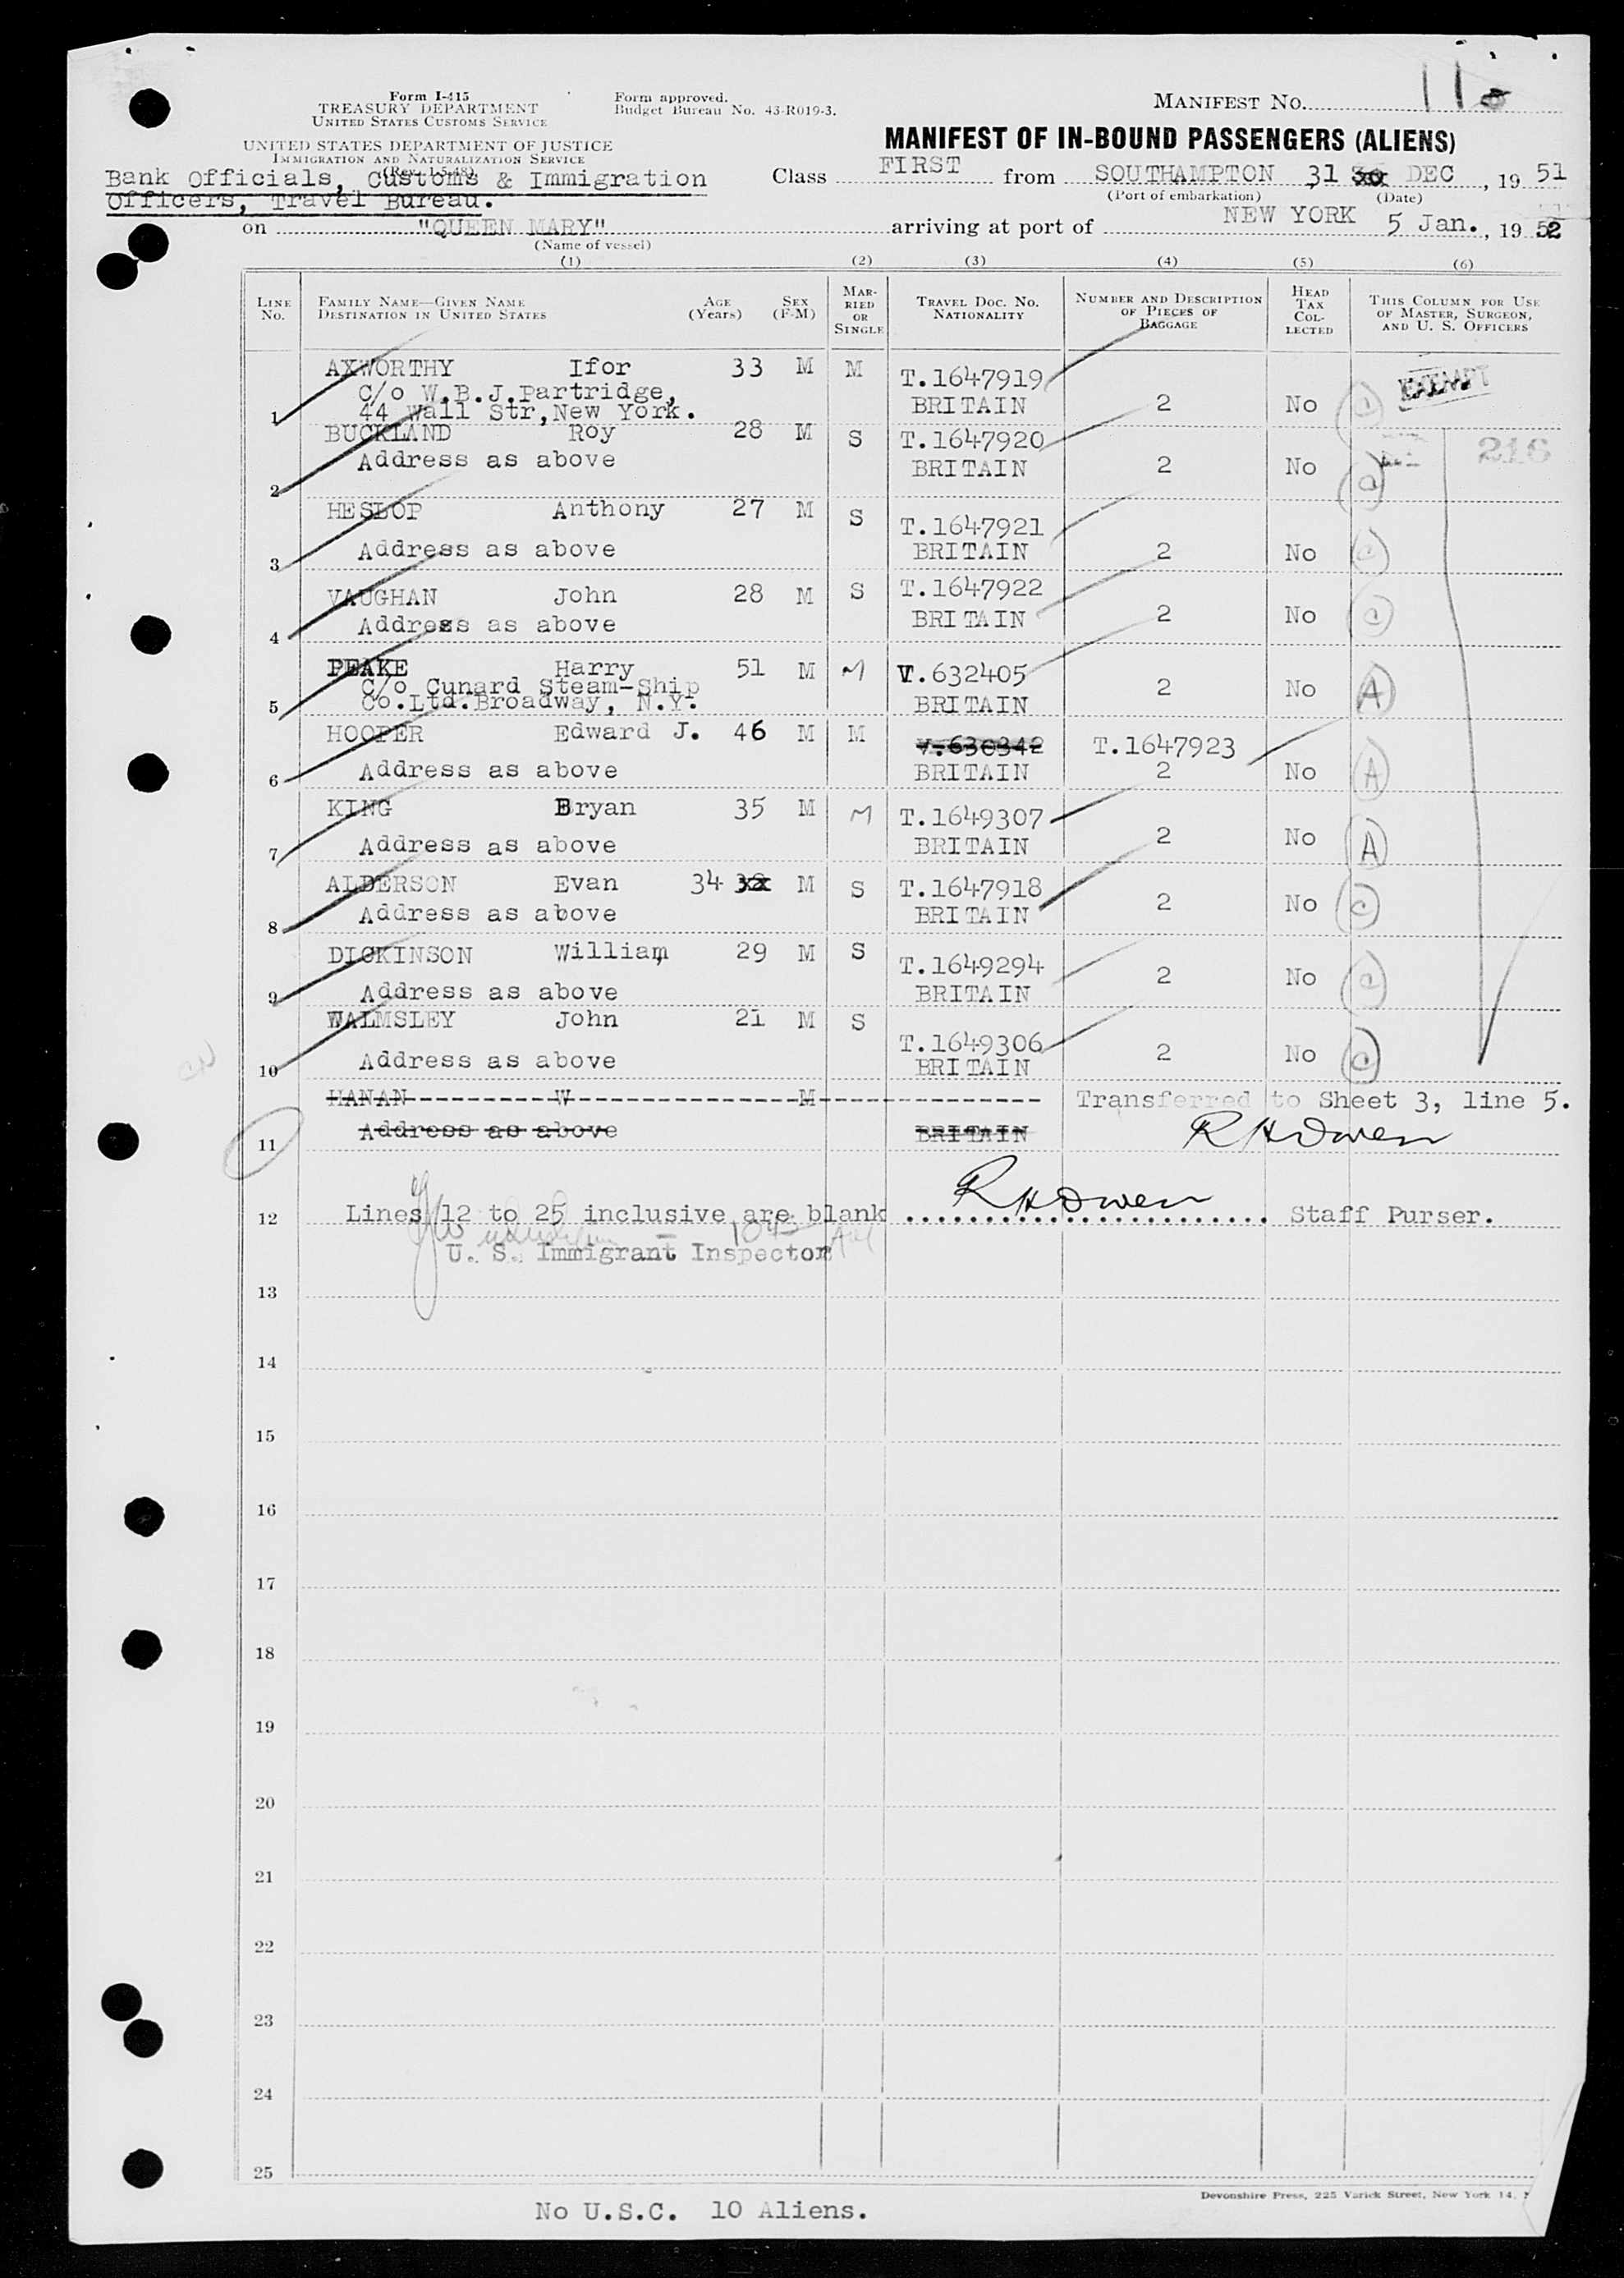 Form I-415
TREASURY DEPARTMENT
UNITED STATES CUSTOMS SERVICE
Form approved.
Budget Bureau No. 43-R019-3.
MANIFEST NO. 11
UNITED STATES DEPARTMENT OF JUSTICE
IMMIGRATION AND NATURALIZATION SERVICE
(Rev. 1-5-48)
MANIFEST OF IN-BOUND PASSENGERS (ALIENS)
Bank Officials, Customs & Immigration
Officers, Travel Bureau.
Class FIRST from SOUTHAMPTON 31 30 DEC, 19 51
(Port of embarkation) (Date)
on "QUEEN MARY" arriving at port of NEW YORK 5 Jan., 19 52
(Name of vessel)
(1) (2) (3) (4) (5) (6)
LINE No. FAMILY NAME—GIVEN NAME DESTINATION IN UNITED STATES AGE (Years) SEX (F-M) MARRIED OR SINGLE TRAVEL DOC. NO. NATIONALITY NUMBER AND DESCRIPTION OF PIECES OF BAGGAGE HEAD TAX COLLECTED THIS COLUMN FOR USE OF MASTER, SURGEON, AND U. S. OFFICERS
AXWORTHY Ifor 33 M M T.1647919 EXEMPT
C/o W.B.J.Partridge, BRITAIN 2 No C
1 44 Wall Str, New York.
BUCKLAND Roy 28 M S T.1647920 216
Address as above BRITAIN 2 No C
2
HESLOP Anthony 27 M S T.1647921
3 Address as above BRITAIN 2 No C
VAUGHAN John 28 M S T.1647922
4 Address as above BRITAIN 2 No C
PEAKE Harry 51 M M V.632405
C/o Cunard Steam-Ship 2 No A
5 Co.Ltd.Broadway, N.Y. BRITAIN
HOOPER Edward J. 46 M M V.630342 T.1647923
6 Address as above BRITAIN 2 No A
KING Bryan 35 M M T.1649307
7 Address as above BRITAIN 2 No A
ALDERSON Evan 34 M S T.1647918
8 Address as above BRITAIN 2 No C
DICKINSON William 29 M S T.1649294
9 Address as above BRITAIN 2 No C
WALMSLEY John 21 M S T.1649306
10 Address as above BRITAIN 2 No C
HANAN W M Transferred to Sheet 3, line 5.
11 Address as above BRITAIN RHOwen
12 Lines 12 to 25 inclusive are blank RHOwen Staff Purser.
U. S. Immigrant Inspector
13
14
15
16
17
18
19
20
21
22
23
24
25
Devonshire Press, 225 Varick Street, New York 14,
No U.S.C. 10 Aliens.